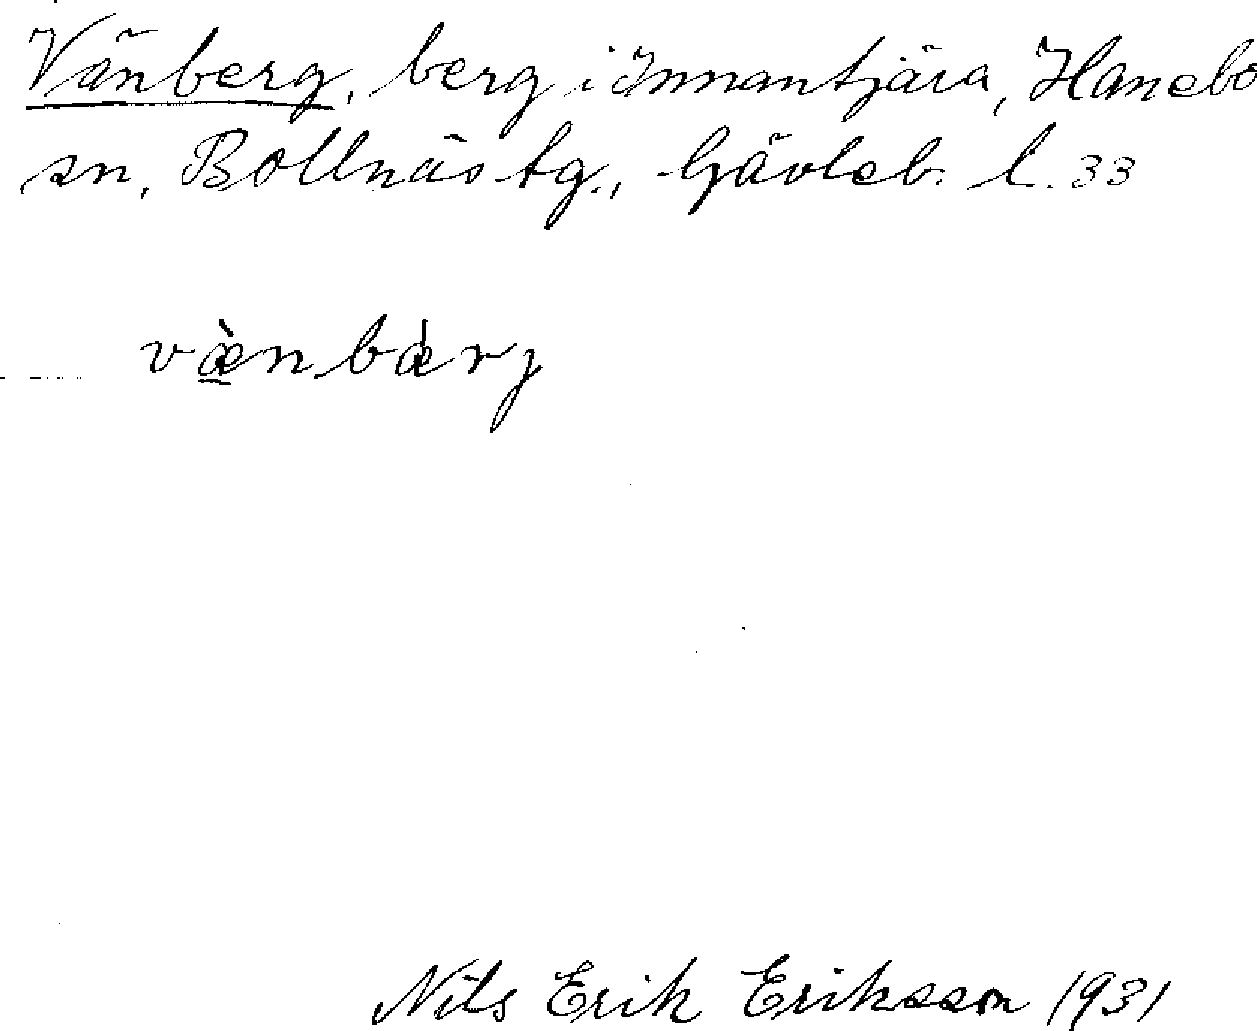 Vänberg, berg i Innantjära, Hanebo
sn, Bollnäs tg., Gävleb. l. 33
væ̀nbærj
Nils Erik Eriksson 1931